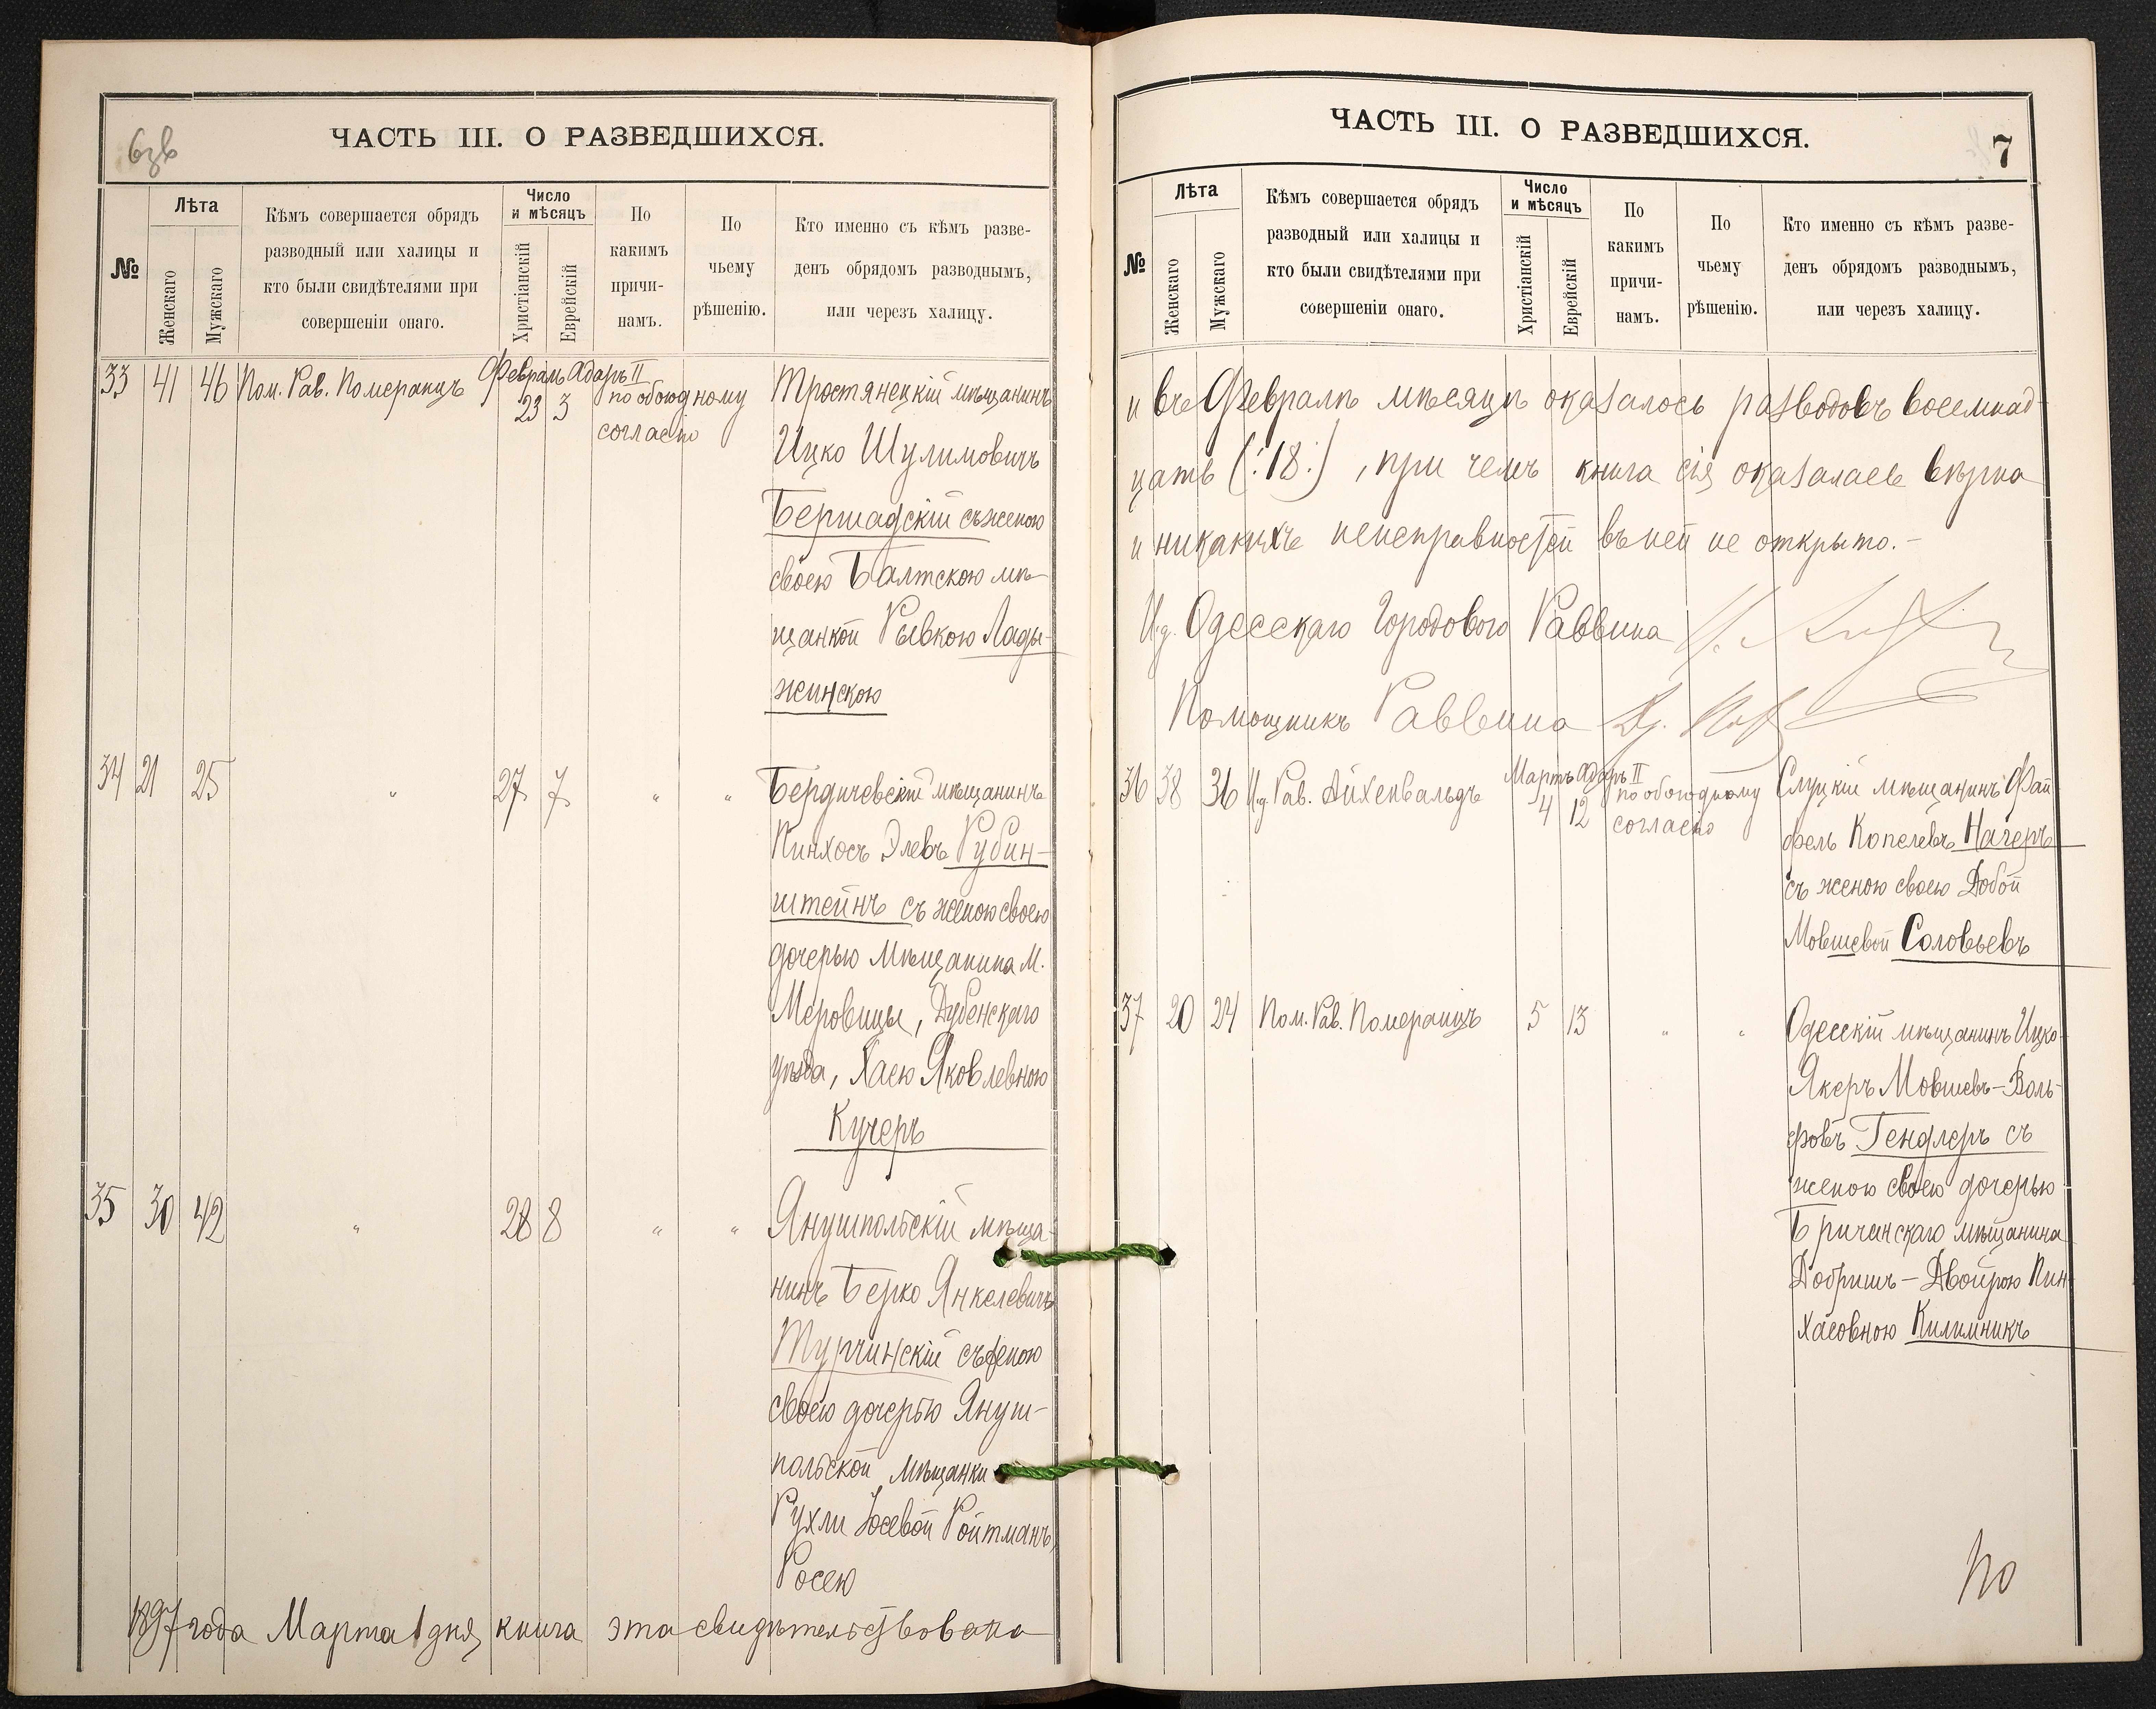 6зв
ЧАСТЬ III. О РАЗВЕДШИХСЯ.
№
Лѣта
Женскаго
Мужскаго
Кѣмъ совершается обрядъ
разводный или халицы и
кто были свидѣтелями при
совершеніи онаго.
Число
и мѣсяцъ
Христіанскій
Еврейскій
По
какимъ
причи-
намъ.
По
чьему
рѣшенію.
Кто именно съ кѣмъ разве-
денъ обрядомъ разводнымъ,
или черезъ халицу.
33 41 46 Пом. Рав. Померанцъ Февраль Адаръ II
23 3 по обоюдному
согласію
Тростянецкій мѣщанинъ
Ицко Шулимовичъ
Бершадскій съ женою
своею Балтскою мѣ-
щанкой Рывкою Лады-
жинскою
34 21 25 " 27 7 " "
Бердичевскій мѣщанинъ
Пинхосъ Элевъ Рубин-
штейнъ съ женою своею
дочерью мѣщанина м.
Меровицы, Дубенскаго
уѣзда, Хаею Яковлевною
Кучеръ
35 30 42 " 28 8 " "
Янушпольскій мѣща-
нинъ Берко Янкелевичъ
Турчинскій съ женою
своею дочерью Януш-
польской мѣщанки
Рухли Іосевой Ройтманъ,
Росею
1897 года Марта 1 дня книга эта свидѣтельствована
ЧАСТЬ III. О РАЗВЕДШИХСЯ.
7
№
Лѣта
Женскаго
Мужскаго
Кѣмъ совершается обрядъ
разводный или халицы и
кто были свидѣтелями при
совершеніи онаго.
Число
и мѣсяцъ
Христіанскій
Еврейскій
По
какимъ
причи-
намъ.
По
чьему
рѣшенію.
Кто именно съ кѣмъ разве-
денъ обрядомъ разводнымъ,
или черезъ халицу.
и въ Февралѣ мѣсяцѣ оказалось разводовъ восемнад-
цать (:18:), при чемъ книга сія оказалась вѣрна
и никакихъ неисправностей въ ней не открыто.-
И.д. Одесскаго Городового Раввина
Помощникъ Раввина
36 38 36 И.д. Рав. Айхенвальдъ Мартъ Адаръ II
4 12 по обоюдному
согласію
Слуцкій мѣщанинъ Фай-
фель Копелевъ Начеръ
съ женою своею Добой
Мовшевой Соловьевъ
37 20 24 Пом. Рав. Померанцъ 5 13 " "
Одесскій мѣщанинъ Ицко-
Якеръ Мовшевъ-Воль-
фовъ Гендлеръ съ
женою своею дочерью
Бричанскаго мѣщанина
Добришъ-Двойрою Пин-
хасовною Килимникъ
По